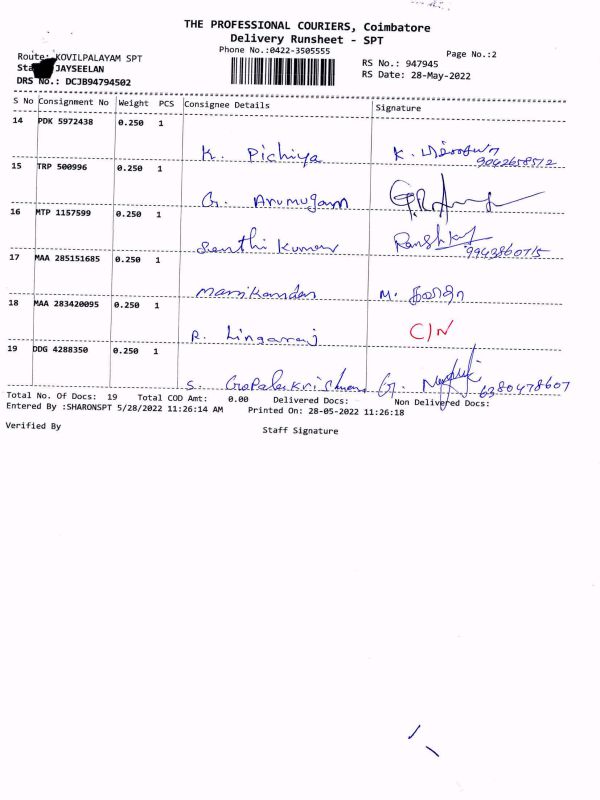 THE PROFESSIONAL COURIERS, Coimbatore
Delivery Runsheet - SPT
Phone No.:0422-3505555
Page No.:2
Route: KOVILPALAYAM SPT
RS No.: 947945
JAYSEELAN
RS Date: 28-May-2022
DRS No.: DCJB94794502
S No Consignment No Weight PCS Consignee Details Signature
14 PDK 5972438 0.250 1
K. Pichiya K.
9042658512
15 TRP 500996 0.250 1
G. Arumugam
16 MTP 1157599 0.250 1
Senthi Kumar
9943860715
17 MAA 285151685 0.250 1
Manikandan M.
18 MAA 283420095 0.250 1
R. Lingarraj C/N
19 DDG 4288350 0.250 1
S. Gopalakrishnan G.
6380478607
Total No. Of Docs: 19 Total COD Amt: 0.00 Delivered Docs: Non Delivered Docs:
Entered By :SHARONSPT 5/28/2022 11:26:14 AM Printed On: 28-05-2022 11:26:18
Verified By
Staff Signature